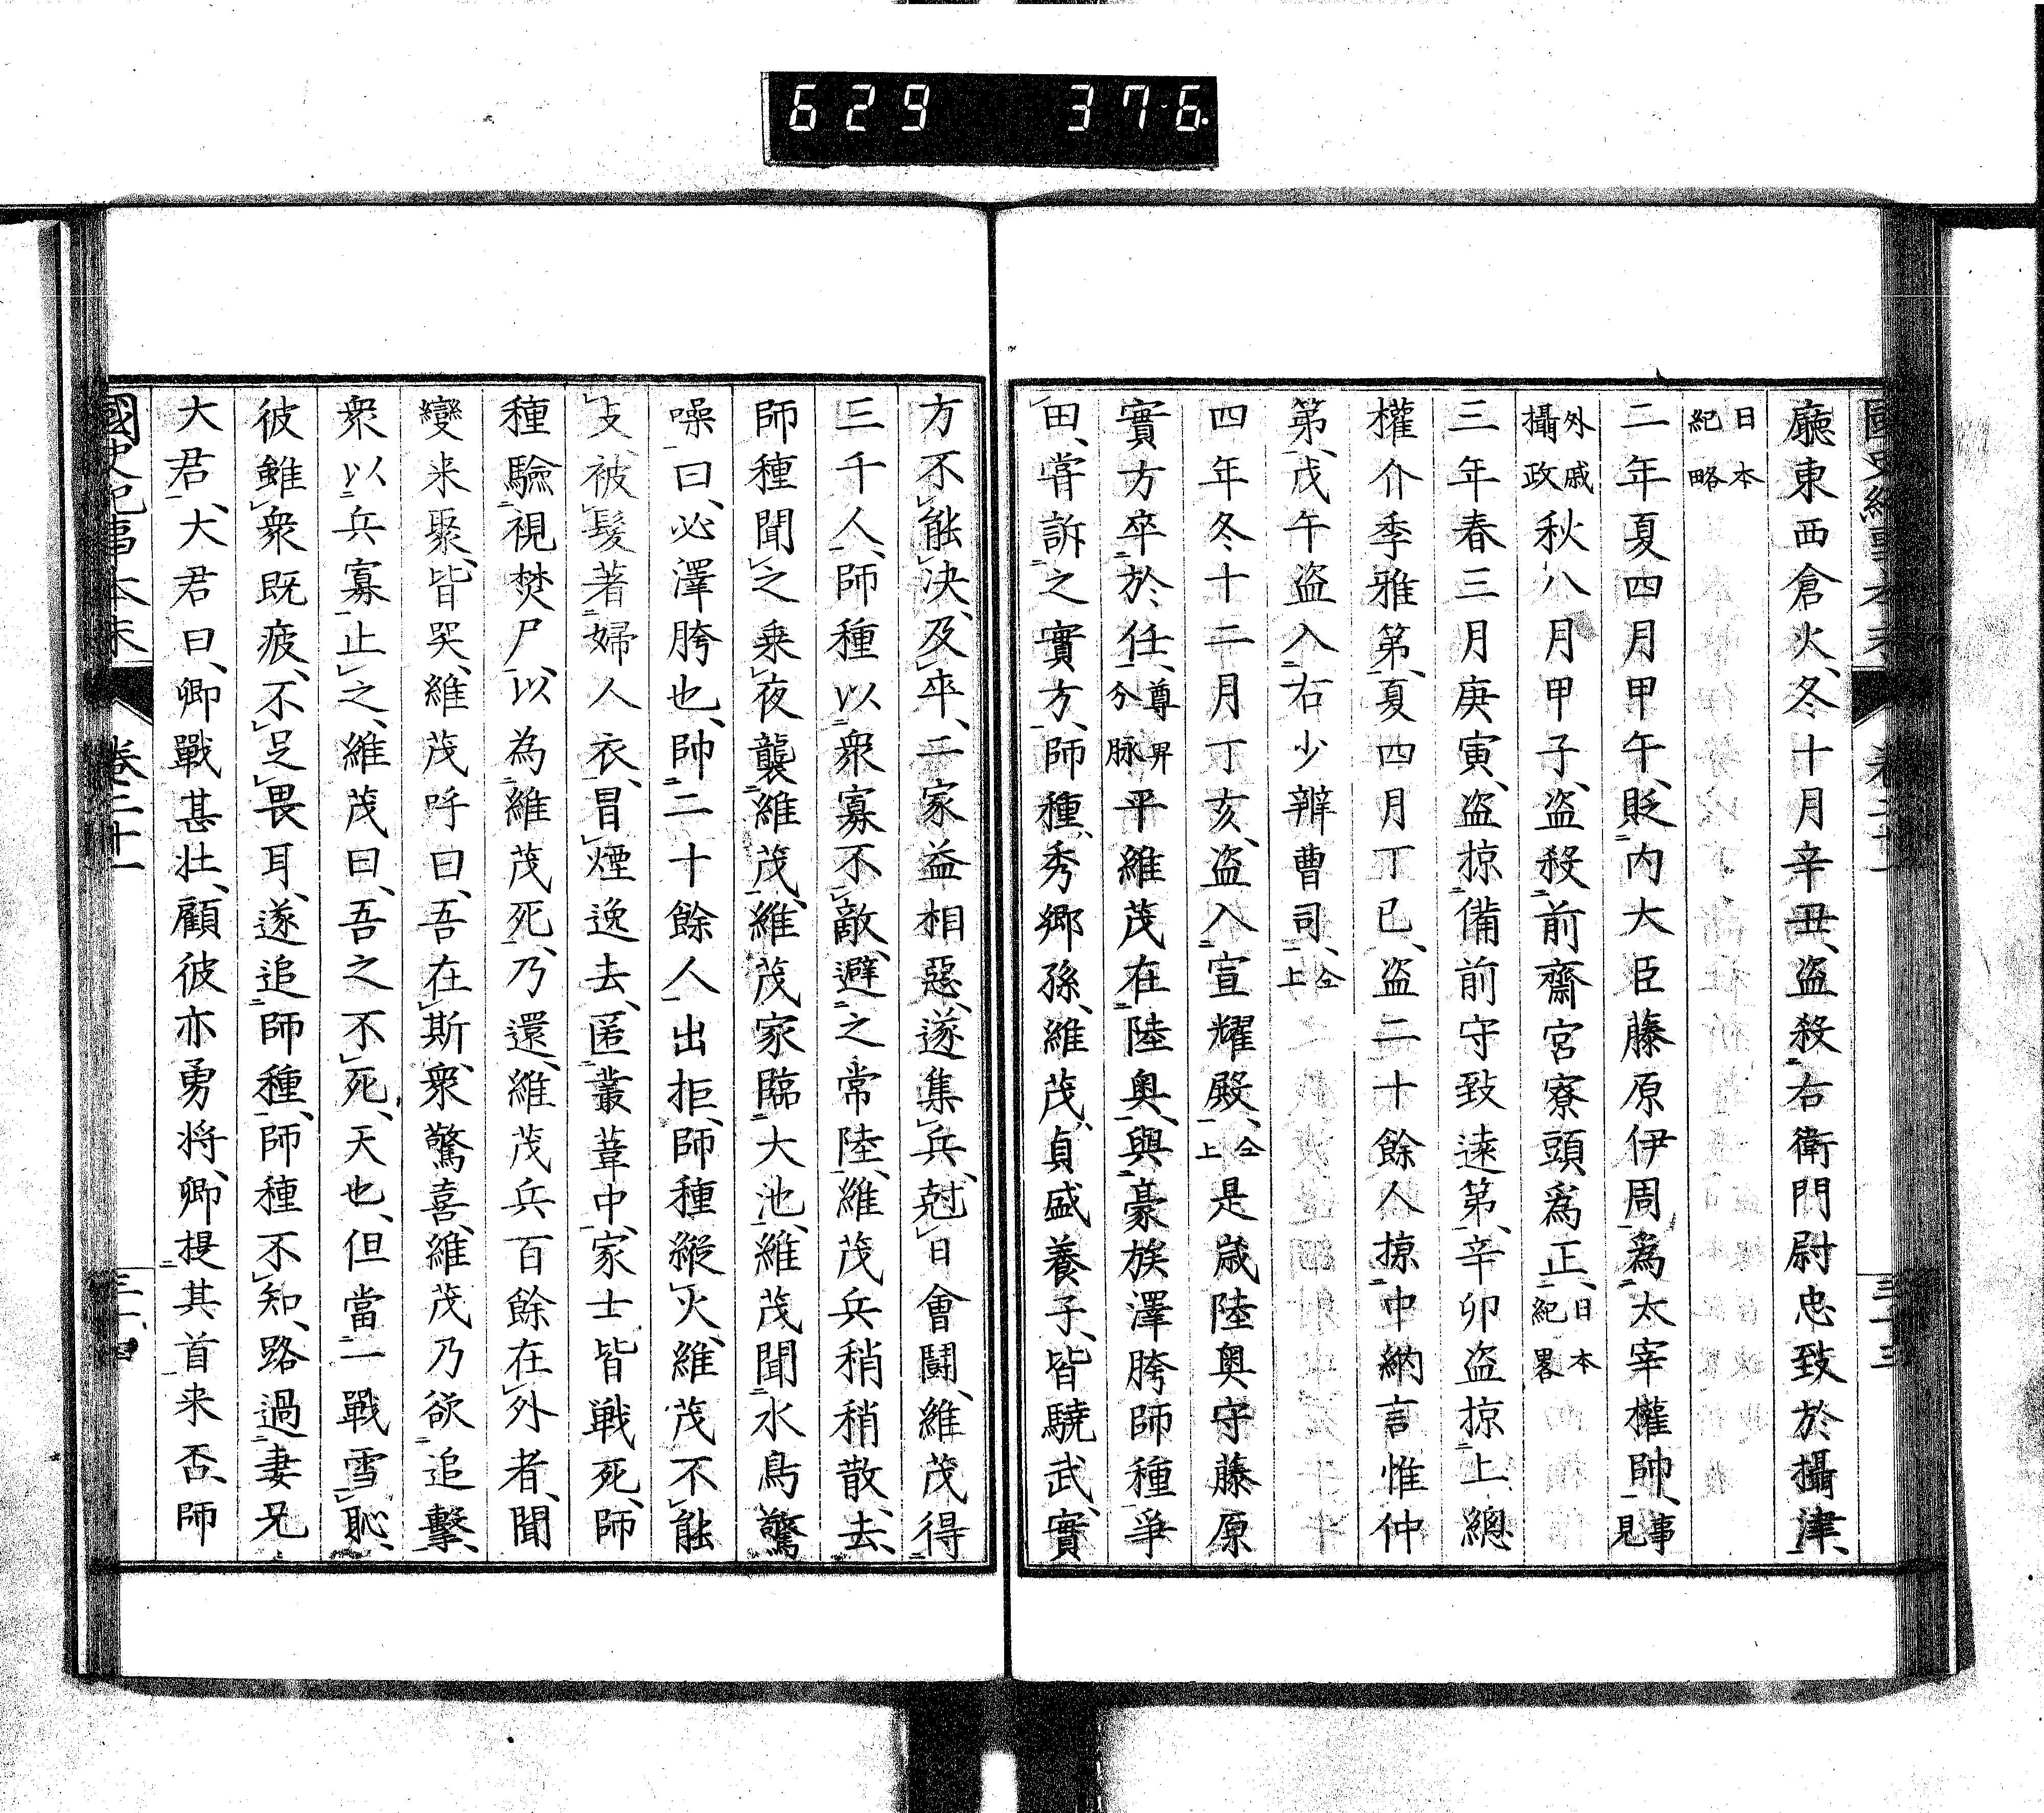 629 376
廳東西倉火、冬十月辛丑、盗殺右衛門尉忠致於攝津、
日本紀略
二年夏四月甲午、貶内大臣藤原伊周、爲太宰權帥、事見
外戚攝政秋八月甲子、盗殺前齋宮寮頭爲正、日本紀畧
三年春三月庚寅、盗掠備前守致遠第、辛卯盗掠上總
權介季雅第、夏四月丁巳、盗二十餘人掠中納言惟仲
第、戊午盗入右少辨曹司、仝上
四年冬十二月丁亥、盗入宣耀殿、仝上是歳陸奥守藤原
實方卒於任、尊卑分脉平維茂在陸奥、與豪族澤胯師種爭
田、甞訴之實方、師種、秀郷孫、維茂、貞盛養子、皆驍武、實
方不能決、及卒、二家益相惡、遂集兵、尅日會鬪、維茂得
三千人、師種以衆寡不敵、避之常陸、維茂兵稍稍散去、
師種聞之乗夜襲維茂、維茂家臨大池、維茂聞水鳥驚
噪曰、必澤胯也、帥二十餘人出拒、師種縱火、維茂不能
支、被髮著婦人衣、冒煙逸去、匿叢葦中、家士皆戦死、師
種驗視焚尸、以為維茂死、乃還、維茂兵百餘在外者、聞
變来聚、皆哭、維茂呼曰、吾在斯、衆驚喜、維茂乃欲追擊、
衆以兵寡止之、維茂曰、吾之不死、天也、但當一戰雪恥、
彼雖衆既疲、不足畏耳、遂追師種、師種不知、路過妻兄
大君、大君曰、卿戰甚壮、顧彼亦勇将、卿提其首来否、師
國史紀事本末 卷二十一 三十四